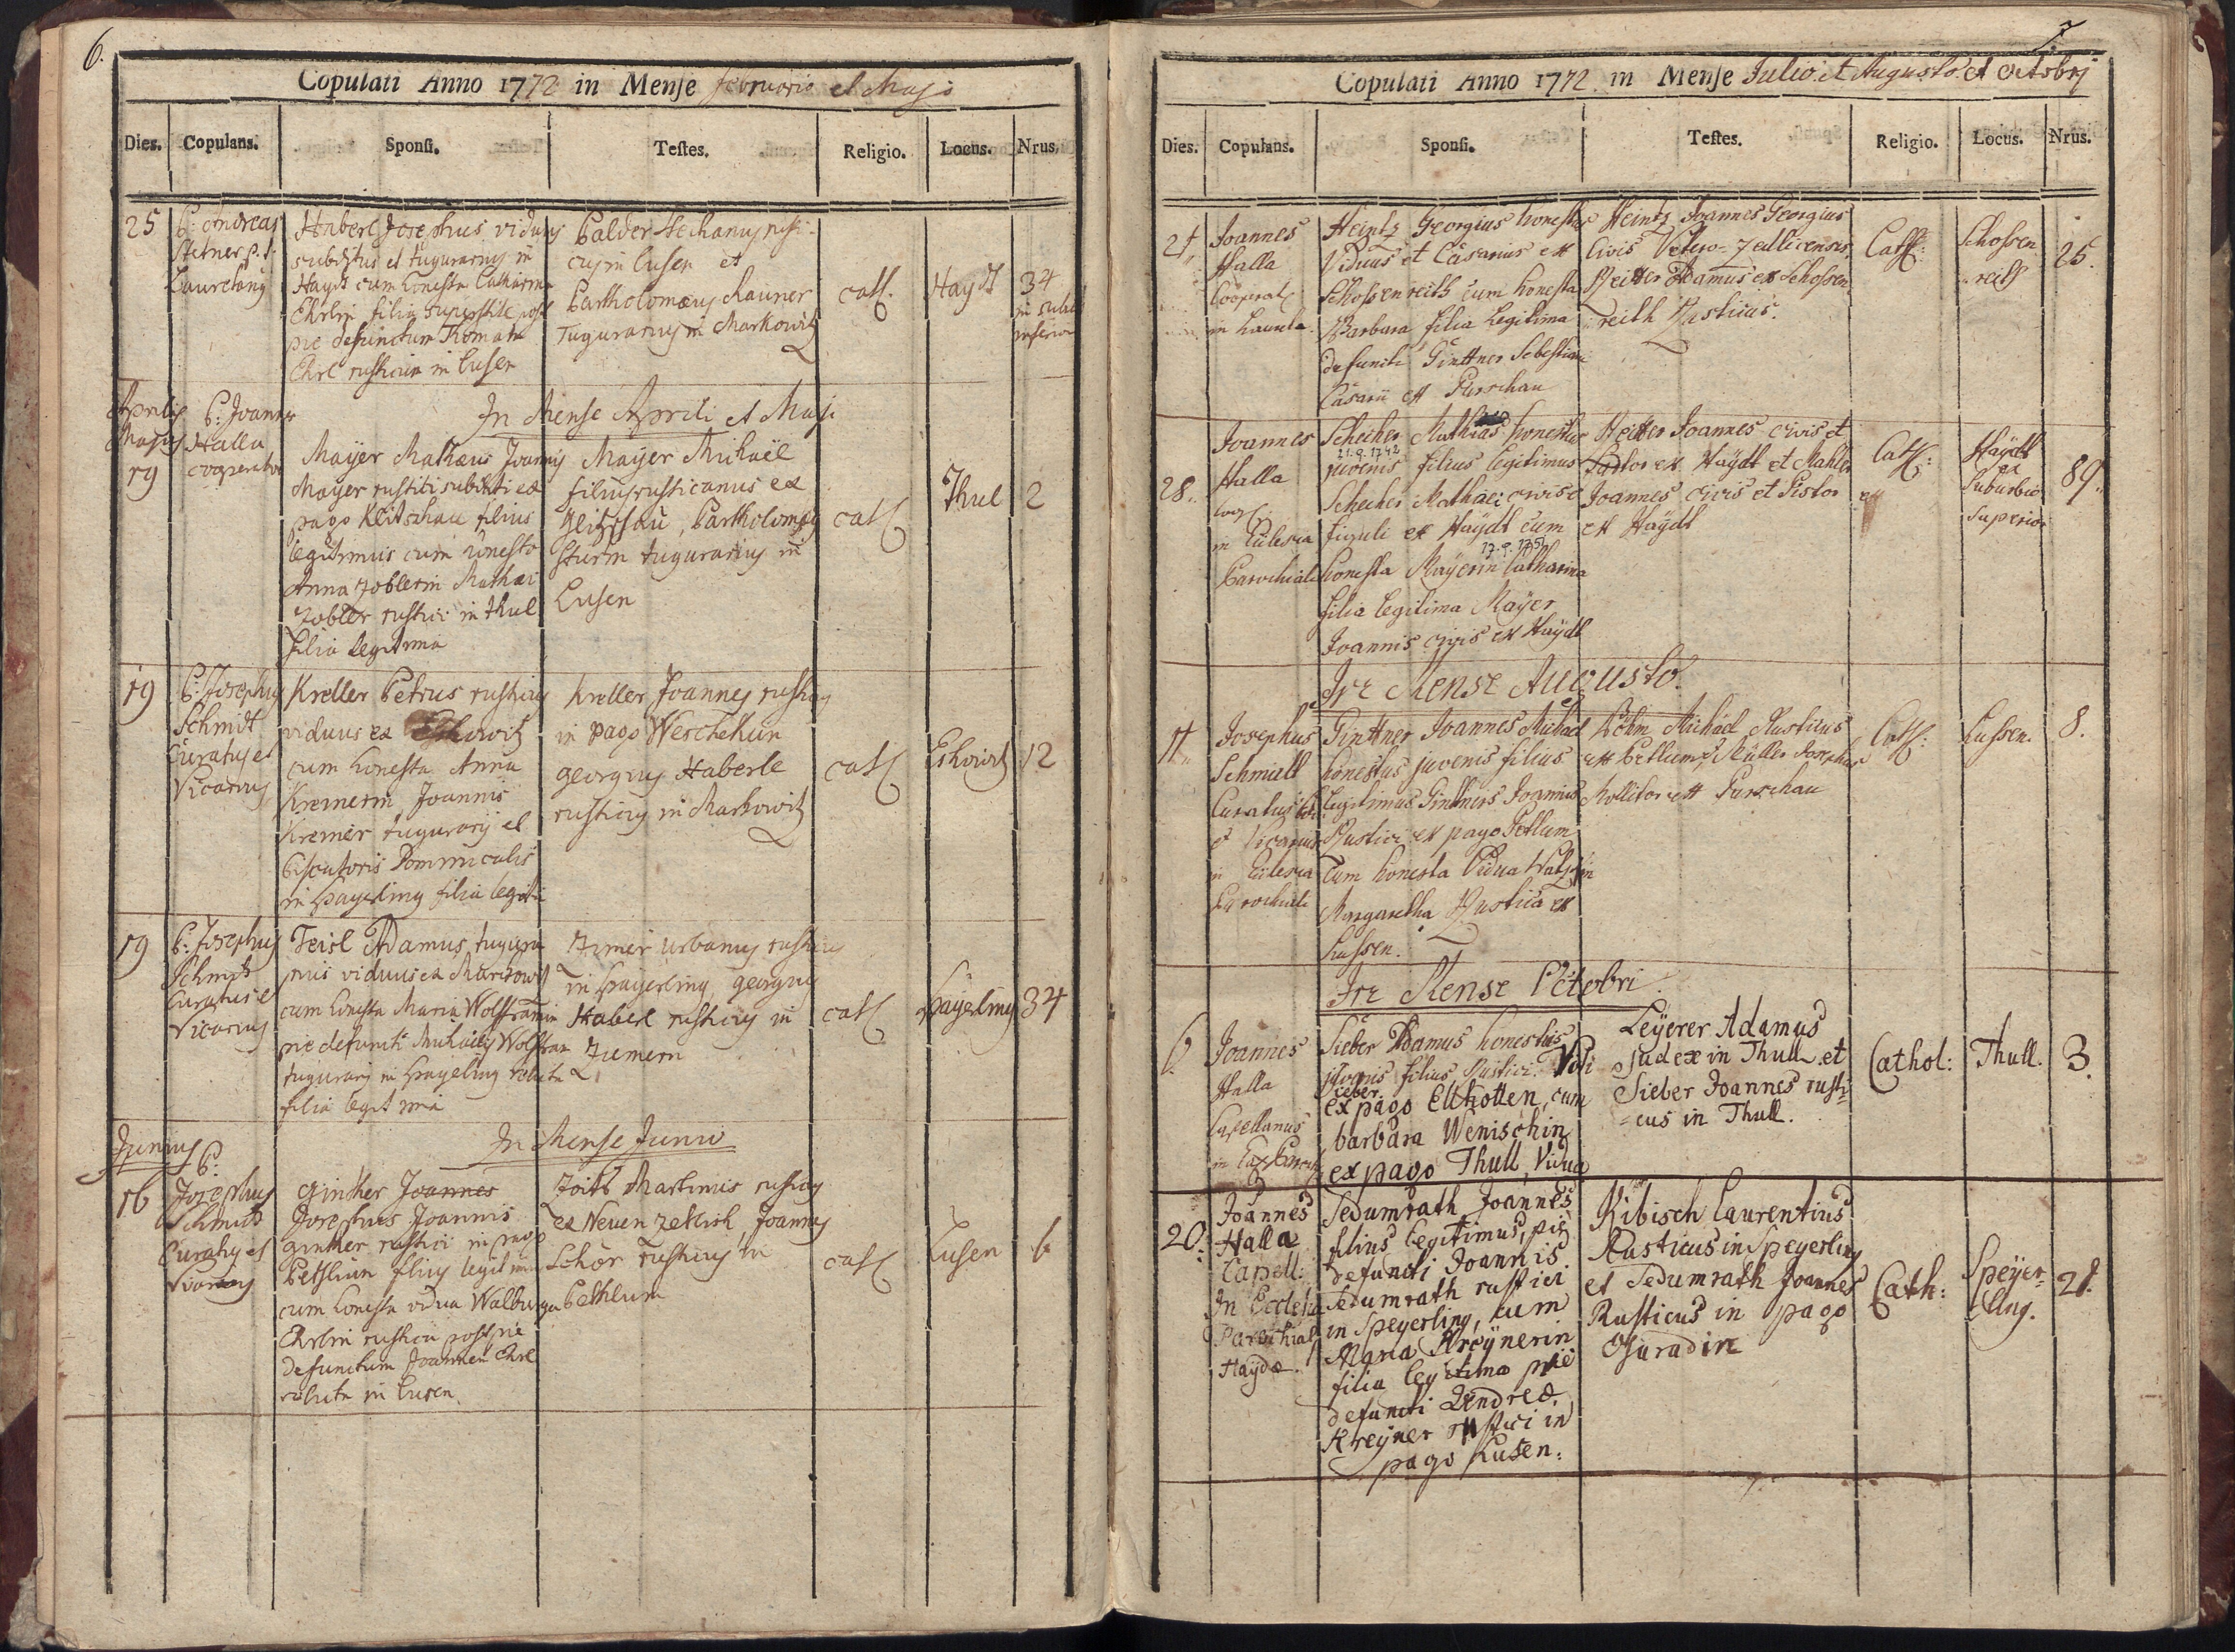 6.
Copulati Anno 1772 in Mense februario et Majo
Dies. Copulans. Sponsi. Testes. Religio. Locus. Nrus.
25
P: Andreas
Stetner p. t.
Lauretany
Haberl Josephus viduus
subditus et tugurarius in
Haydt cum honesta Catharina
Ehrlin filia superstite post
pie defunctum Thomam
Ehrl rusticum in Lusen
Balder Stephanus rusti-
cus in Lusen et
Bartholomæus Rauner
Tugurarius in Markowitz
cath.
Haydt
34
in
inferiori
Aprilis
Majus
19
P: Joannes
Halla
cooperator
In Mense Aprili et Maji
Mayer Mathæus Joannis
Mayer rustici subditi ex
pago Klitschau filius
legitimus cum honesta
Anna Zoblerin Mathæi
Zobler rustici in Thul
filia legitima
Mayer Michaël
filius rusticanus ex
Bartholomæus
Sturm tugurarius in
Lusen
cath
Thul
2
19
P: Josephus
Schmidt
Curatus et
Vicarius
Kreller Petrus rusticus
viduus ex Eskowitz
cum honesta Anna
Kremerin Joannis
Kremer tugurarij et
Dominicalis
in Spayerling filia legitima
Kreller Joannes rusticus
in pago Weschekun
georgius Haberle
rusticus in Markowitz
cath
Eskowitz
12
19
P: Josephus
Schmidt
Curatus et
Vicarius
Teisl Adamus tugura-
rius viduus ex
cum honesta Maria Wolframin
pie defuncti Michaelis Wolfram
tugurarij in Spayerling relicta
filia legitima
Zimer urbanus rusticus
in Spayerling georgius
Haberl rusticus in
Ziemern
cath
Spayerling
34
Junius
In Mense Junio
16
P:
Josephus
Schmidt
Curatus et
Vicarius
Ginther Joannes
Josephus Joannis
ginther rustici in pago
Bethlum filius legitimus
cum honesta vidua Walburga
Ehrlin rustica post pie
defunctum Joannem Ehrl
relicta in Lusen
Zoitl Martinus rusticus
ex Neuen Zetlish Joannes
Schor rusticus in
Bethlum
cath
Lusen
6
7
Copulati Anno 1772. in Mense Julio et Augusto et Octobrj
Dies. Copulans. Sponsi. Testes. Religio. Locus. Nrus.
21.
Joannes
Halla
Cooperat:
in Laureta
Heintz Georgius honestus
Viduus et Casarius ex
Schossenreith cum honesta
Barbara filia Legitima
defuncti Ginttner Sebastiani
Casarii ex Purschau
Heintz Joannes Georgius
Civis Vetero-Zedlicensis,
Reitter Adamus ex Schossen
reith Rusticus.
Cath:
Schossen
reith
25.
28.
Joannes
Halla
Coop:
in Ecclesia
Parochiali
Schecher Mathias honestus
21.9.1742
juvenis filius legitimus
Schecher Mathæi civis et
figuli ex Haydt cum
17.9.1751
honesta Mayerin Catharina
filia legitima Mayer
Joannis civis ex Haydt
Heitter Joannes civis et
Sartor ex Haydt et Mahler
Joannes civis et Pistor
ex Haydt
Cath:
Haydt
ex
Suburbio
Superiori
89.
In Mense Augusto.
11.
Josephus
Schmidt
Curatus
et Vicarius
in Ecclesia
Parochiali
Ginttner Joannes Michael
honestus juvenis filius
legitimus Ginttners Joannis
Rustici ex pago Petlum
cum honesta Vidua
Margaretha Rustica ex
Lussen.
Böhm Michael Rusticus
ex Petlum, Müller Josephus
Mollitor ex Purschau
Cath:
Lussen.
8.
In Mense Octobri.
6.
Joannes
Halla
Capellanus
Sieber Adamus honestus
juvenis filius Rustici Viti
Sieber
ex pago Elthotten, cum
barbara Wenischin
ex pago Thull, Vidua
Leyerer Adamus
Judex in Thull et
Sieber Joannes rusti-
=cus in Thull.
Cathol:
Thull.
3.
20.
Joannes
Halla
Capell:
In Ecclesia
Parochiali
Haydæ.
Sedumrath Joannes
filius legitimus, pie
defuncti Joannis
Sedumrath rustici
in Speyerling, cum
Maria Kreynerin
filia legitima pie
defuncti Andreæ
Kreyner rustici in
pago Lusen:
Kibisch Laurentius
Rusticus in Speyerling
et Sedumrath Joannes
Rusticus in pago
Guradin
Cath:
Speyer=
Ling.
21.